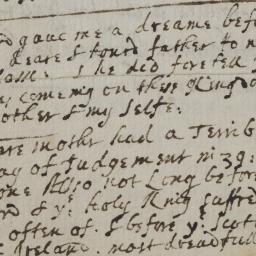 gaue me a dreame befo
deare & tender father to m
he did fore tell
comeing on these Kingdo
other & my selfe:
are mother had a Terrib
ay of Judgement in 39:
one Also not Long before
& ye holy King suffred
often of. & before ye Scot
Ireland. most dreadfull